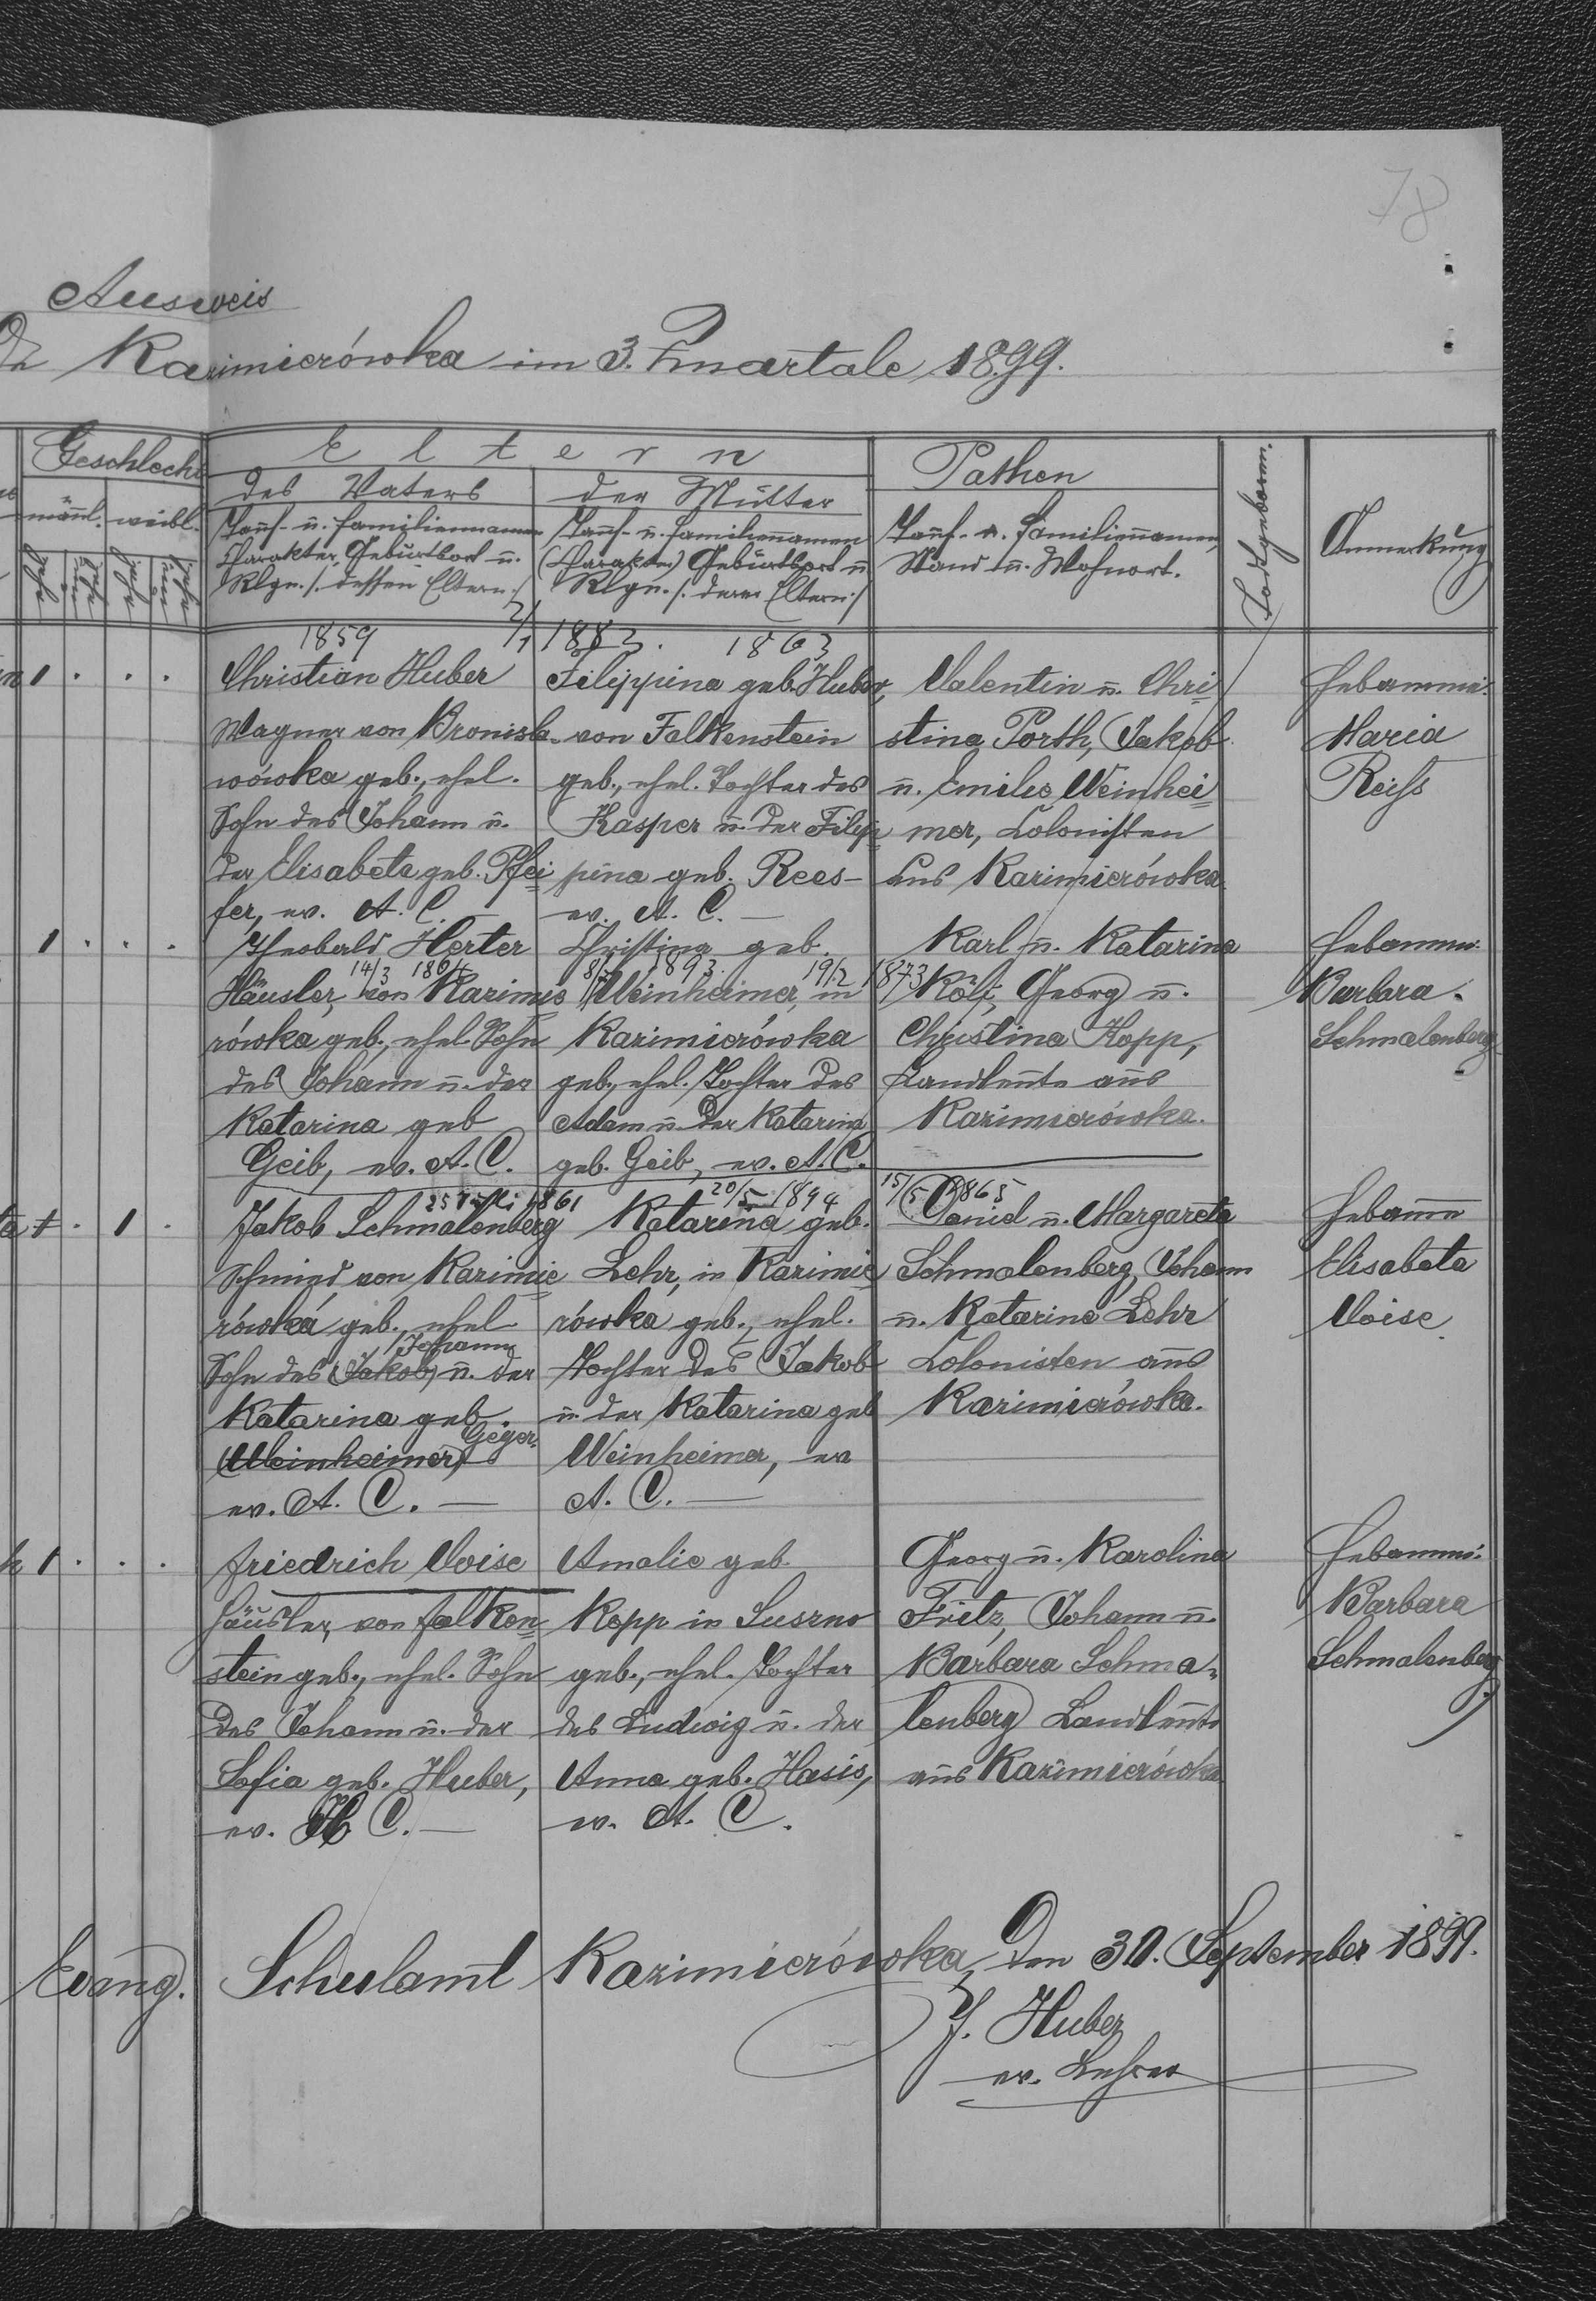 78
Ausweis
Kazimierówka im 3. Quartale 1899.
Geschlecht
männl. weibl.
Eltern
des Vaters
der Mutter
Pathen
Todtgeboren.
Anmerkung
Tauf- u. Familiennamen
Charakter, Geburtsort u.
Rlgn. /. dessen Eltern./
Tauf- u. Familiennamen
(Charakter) Geburtsort u
Rlgn. /. deren Eltern./
Tauf- u. Familiennamen,
Stand u. Wohnort.
1859 2/1 1883. 1863
1 . . .
Christian Huber
Wagner von Bronisla-
wówka geb., ehel.
Sohn des Johann u.
der Elisabeta geb. Pfei-
fer, ev. A. C. —
Filippina geb. Huber,
von Falkenstein
geb., ehel. Tochter des
Kasper u. der Filip-
pina geb. Rees-
ev. A. C. —
Valentin u. Chri-
stina Porth, Jakob
u. Emilie Weinhei-
mer, Colonisten
aus Kazimierówka
Hebamme:
Maria
Reiß
1 . . .
Theobald Herter
14/3 1864
Häusler, von Kazimie-
rówka geb., ehel. Sohn
des Johann u. der
Katarina geb
Geib, ev. A. C.
Christina geb.
1893. 19/2 1873
Weinheimer, in
Kazimierówka
geb., ehel. Tochter des
Adam u. der Katarina
geb. Geib, ev. A. C.
Karl u. Katarina
Kölj, Georg u.
Christina Kopp,
Landleute aus
Kazimierówka.
Hebamme:
Barbara
Schmalenberg
. 1 .
1861 20/5 1894 15/5 1865
Jakob Schmalenberg
Schmied von Kazimie-
rówka geb., ehel
Johann
Sohn des (Jakob) u. der
Katarina geb.
Geger.
(Weinheimer)
ev. A. C. —
Katarina geb.
Lehr, in Kazimie-
rówka geb., ehel.
Tochter des Jakob
u. der Katarina geb
Weinheimer, ev
A. C. —
Daniel u. Margareta
Schmalenberg, Johann
u. Katarina Lehr
Colonisten aus
Kazimierówka.
Hebamme
Elisabeta
Voise
1 . . .
Friedrich Voise
Häusler, von Falken-
stein geb., ehel. Sohn
des Johann u. der
Sofia geb. Huber,
ev. H C. —
Amalie geb.
Kopp in Suszno
geb., ehel. Tochter
des Ludwig u. der
Anna geb. Hasis,
ev. A. C.
Georg u. Karolina
Fritz, Johann u.
Barbara Schma-
lenberg Landleute
aus Kazimierówka
Hebamme:
Barbara
Schmalenberg
Evang. Schulamt Kazimierówka, den 30. September 1899.
J. Huber
ev. Lehrer